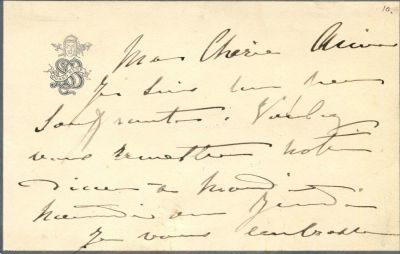 10.
Ma Chérie Aimée
Je suis un peu
souffrante. Voulez
vous remettre notre
diner à Mardi
Mercredi ou Jeudi
Je vous embrasse